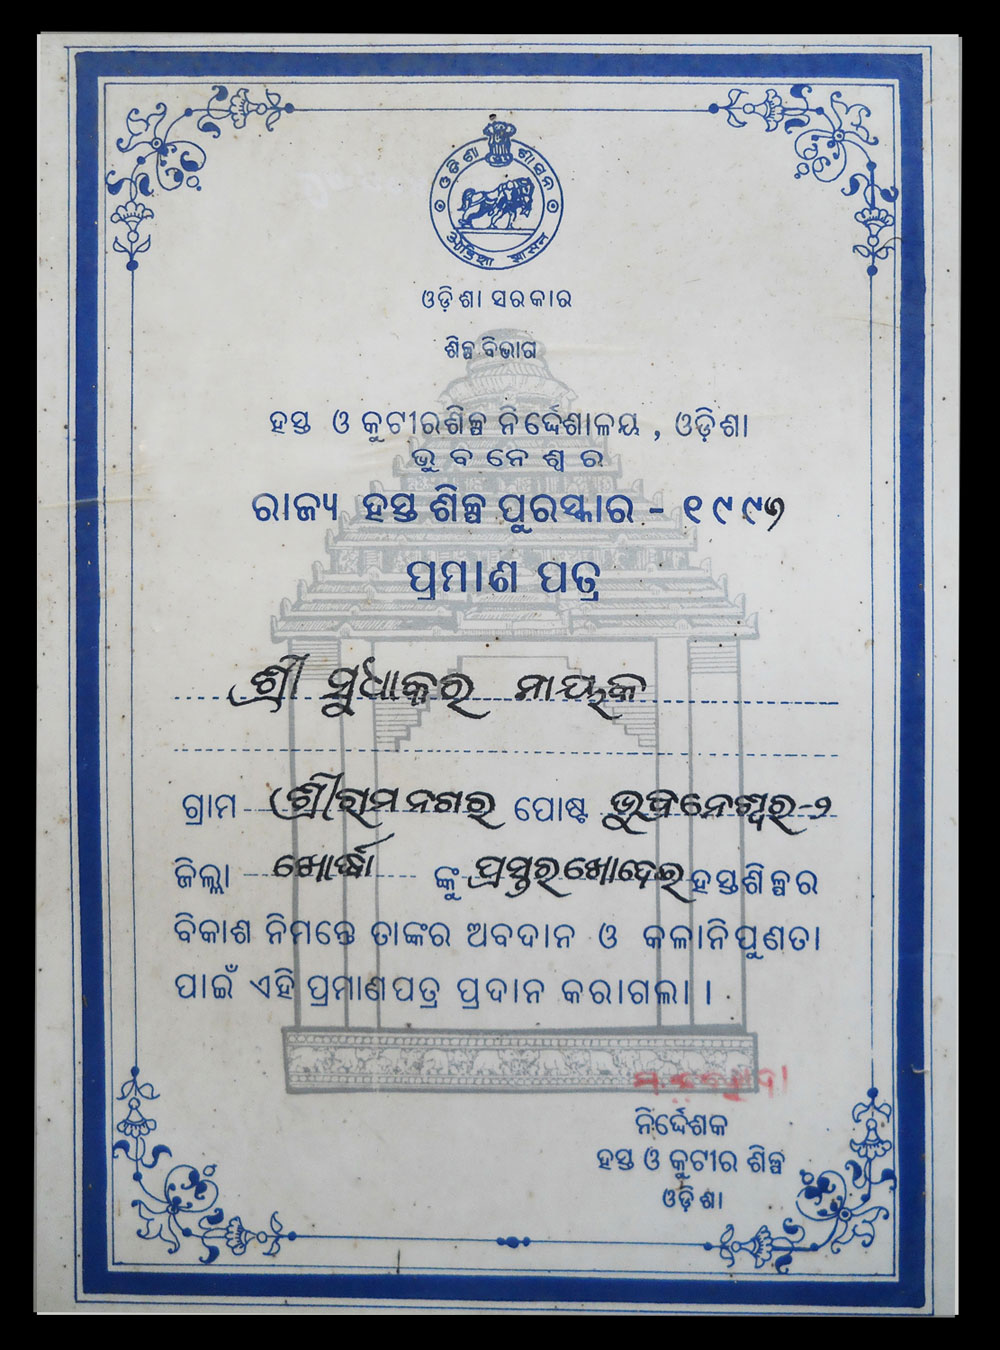 ଓଡ଼ିଶା ଶାସନ
ओड़िशा शासन
ଓଡ଼ିଶା ସରକାର
ଶିଳ୍ପ ବିଭାଗ
ହସ୍ତ ଓ କୁଟୀରଶିଳ୍ପ ନିର୍ଦ୍ଦେଶାଳୟ , ଓଡ଼ିଶା
ଭୁବନେଶ୍ୱର
ରାଜ୍ୟ ହସ୍ତ ଶିଳ୍ପ ପୁରସ୍କାର - ୧୯୯୭
ପ୍ରମାଣ ପତ୍ର
ଶ୍ରୀ ସୁଧାକର ନାୟକ
ଗ୍ରାମ ଶ୍ରୀରାମ ନଗର ପୋଷ୍ଟ ଭୁବନେଶ୍ୱର-୨
ଜିଲ୍ଲା ଖୋର୍ଦ୍ଧା ଙ୍କୁ ପ୍ରସ୍ତରଖୋଦେଇ ହସ୍ତଶିଳ୍ପର
ବିକାଶ ନିମନ୍ତେ ତାଙ୍କର ଅବଦାନ ଓ କଳାନିପୁଣତା
ପାଇଁ ଏହି ପ୍ରମାଣପତ୍ର ପ୍ରଦାନ କରାଗଲା ।
ନିର୍ଦ୍ଦେଶକ
ହସ୍ତ ଓ କୁଟୀର ଶିଳ୍ପ
ଓଡ଼ିଶା